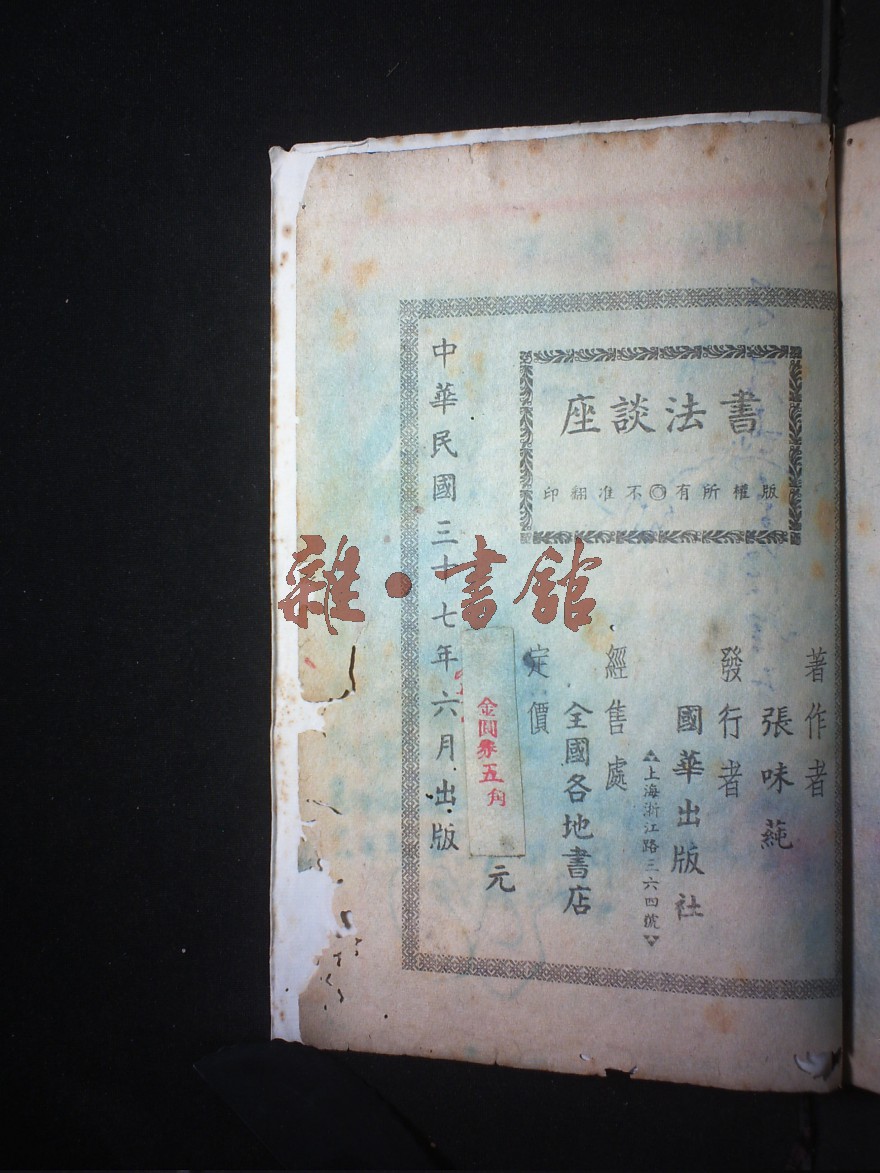 書法談座
版權所有◎不准翻印
著作者
張味蒓
發行者
國華出版社
上海浙江路三六四號
經售處
全國各地書店
定價
金圓券五角
元
中華民國三十七年六月出版
雜·書館